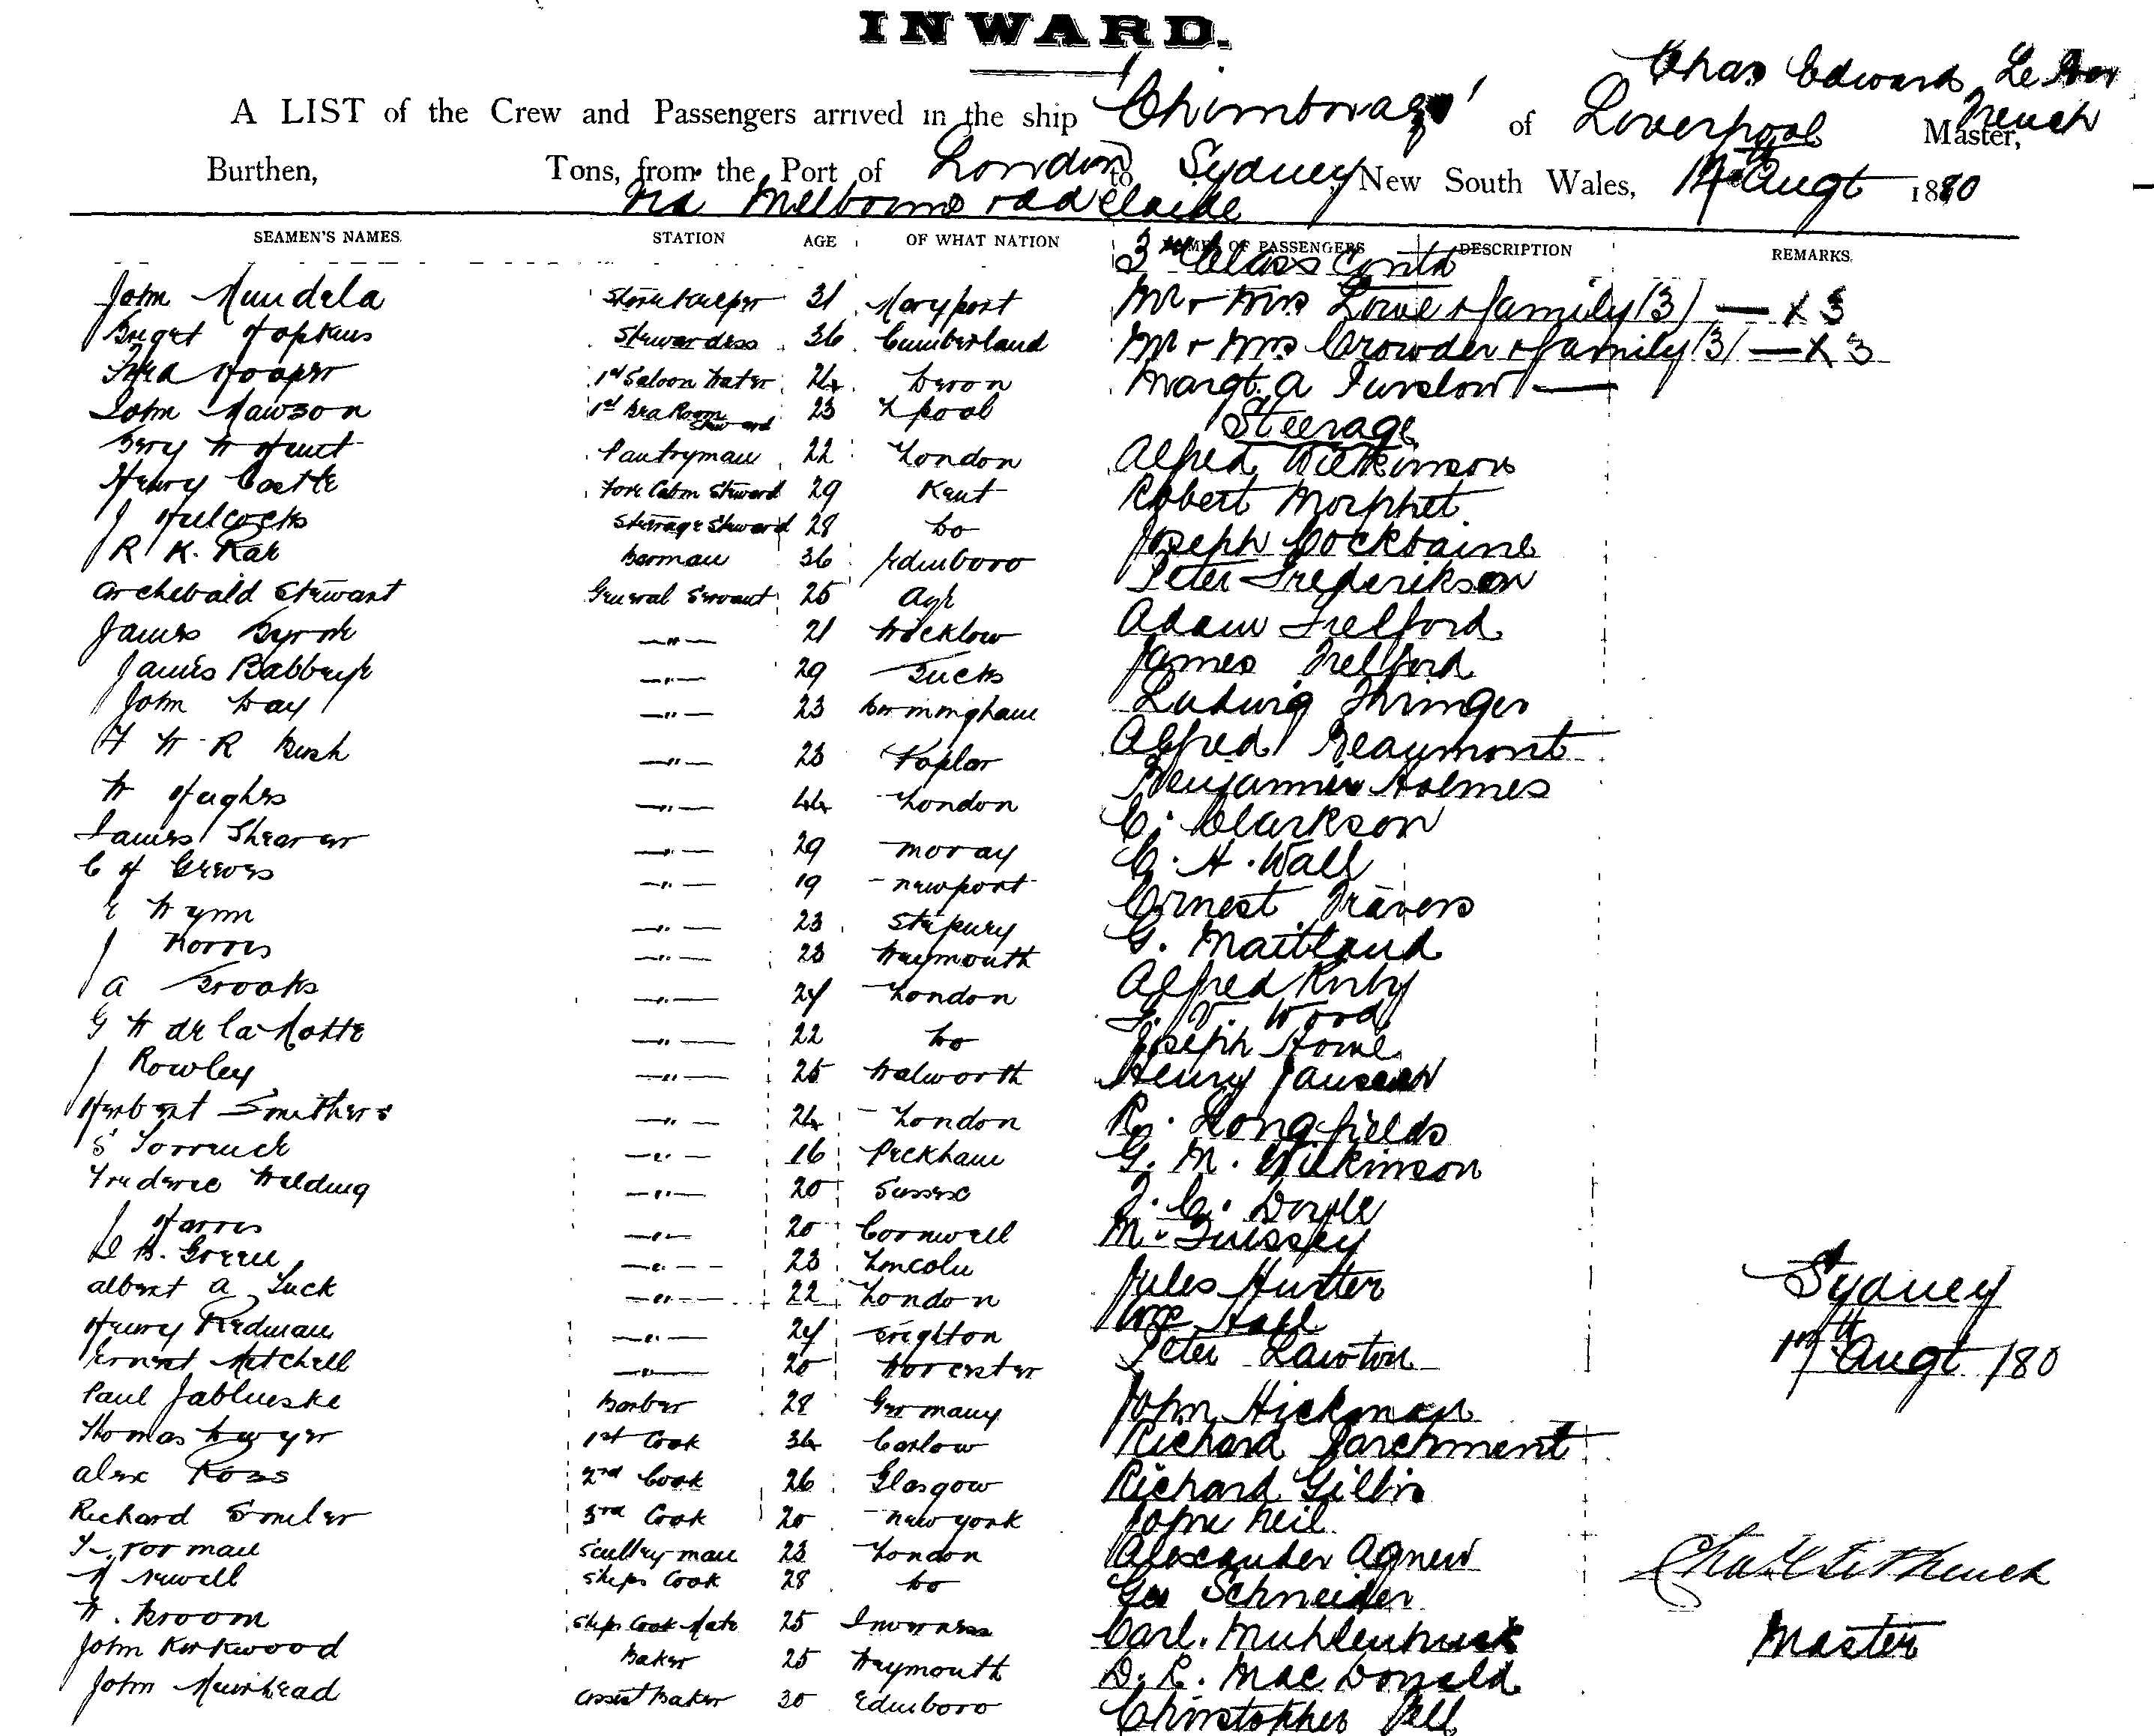 INWARD.
Chas Edward Le
A LIST of the Crew and Passengers arrived in the ship 'Chimborazo' of Liverpool Master, French
Burthen, Tons, from the Port of London to Sydney, New South Wales, 14th Augt 1880
via Melbourne & Adelaide
SEAMEN'S NAMES. STATION AGE OF WHAT NATION NAMES OF PASSENGERS DESCRIPTION REMARKS.
3rd Class Contd
John Storekeeper 31 Maryport Mr & Mrs Lowe & family (3) — X 3
Hopkins Stewardess 36 Cumberland Mr & Mrs Crowder & family (3) — X 3
Fred Hooper 1st Saloon Waiter 24 Devon Margt. A Furslow —
John Mawson 1st Bed Room Steward 23 L'pool Steerage
W Hunt Pantryman 22 London Alfred Wilkinson
Henry Castle Fore Cabin Steward 29 Kent Robert Morphet
J Hillcocks Steerage Steward 28 Do Joseph Cockbaine
R K. Rae Barman 36 Edinboro Peter Frederikson
Archebald Stewart General Servant 25 Ayr Adam Telford
James Byrne —"— 21 Wicklow James Telford
James —"— 29 Bucks Ludwig
John Day —"— 23 Birmingham Alfred Beaumont
F W R Bush —"— 23 Poplar Benjamin Holmes
W Hughes —"— 44 London C. Clarkson
James Shearer —"— 29 Moray C. H. Wall
C H Greves —"— 19 Newport Ernest Travers
E Wynn —"— 23 Stepney G. Maitland
J Norris —"— 23 Weymouth Alfred Kirby
A Brooks —"— 24 London F. V. Wood
G W de la Motte —"— 22 Do Joseph Howe
J Rowley —"— 25 Walworth Henry Jansen
Herbert Smithers —"— 24 London R. Longfields
S —"— 16 Peckham G. M. Wilkinson
Frederic Welding —"— 20 Sussex J. C. Doyle
J Harris —"— 20 Cornwall M.
D B. Green —"— 23 Lincoln Jules Hurter
Albert A Tuck —"— 22 London Wm Hall
Henry Redman —"— 24 Brighton Peter Lawton
Ernest Mitchell —"— 20 Worcester
Paul Jablueske Barber 28 Germany John Hickman
Thomas Dwyer 1st Cook 34 Carlow Richard Parchment
Alex Ross 2nd Cook 26 Glasgow Richard Gillis
Richard 3rd Cook 20 New York John Neil
Scullery man 23 London Alexander Agnew
Newell Ships Cook 28 Do Geo Schneider
W. Broom Ships Cook Mate 25 Inverness Carl.
John Kirkwood Baker 25 Weymouth D. R. MacDonald
John Muirhead Assist Baker 30 Edinboro Christopher Bell
Sydney
17th Augt /80
Chas E Le French
Master